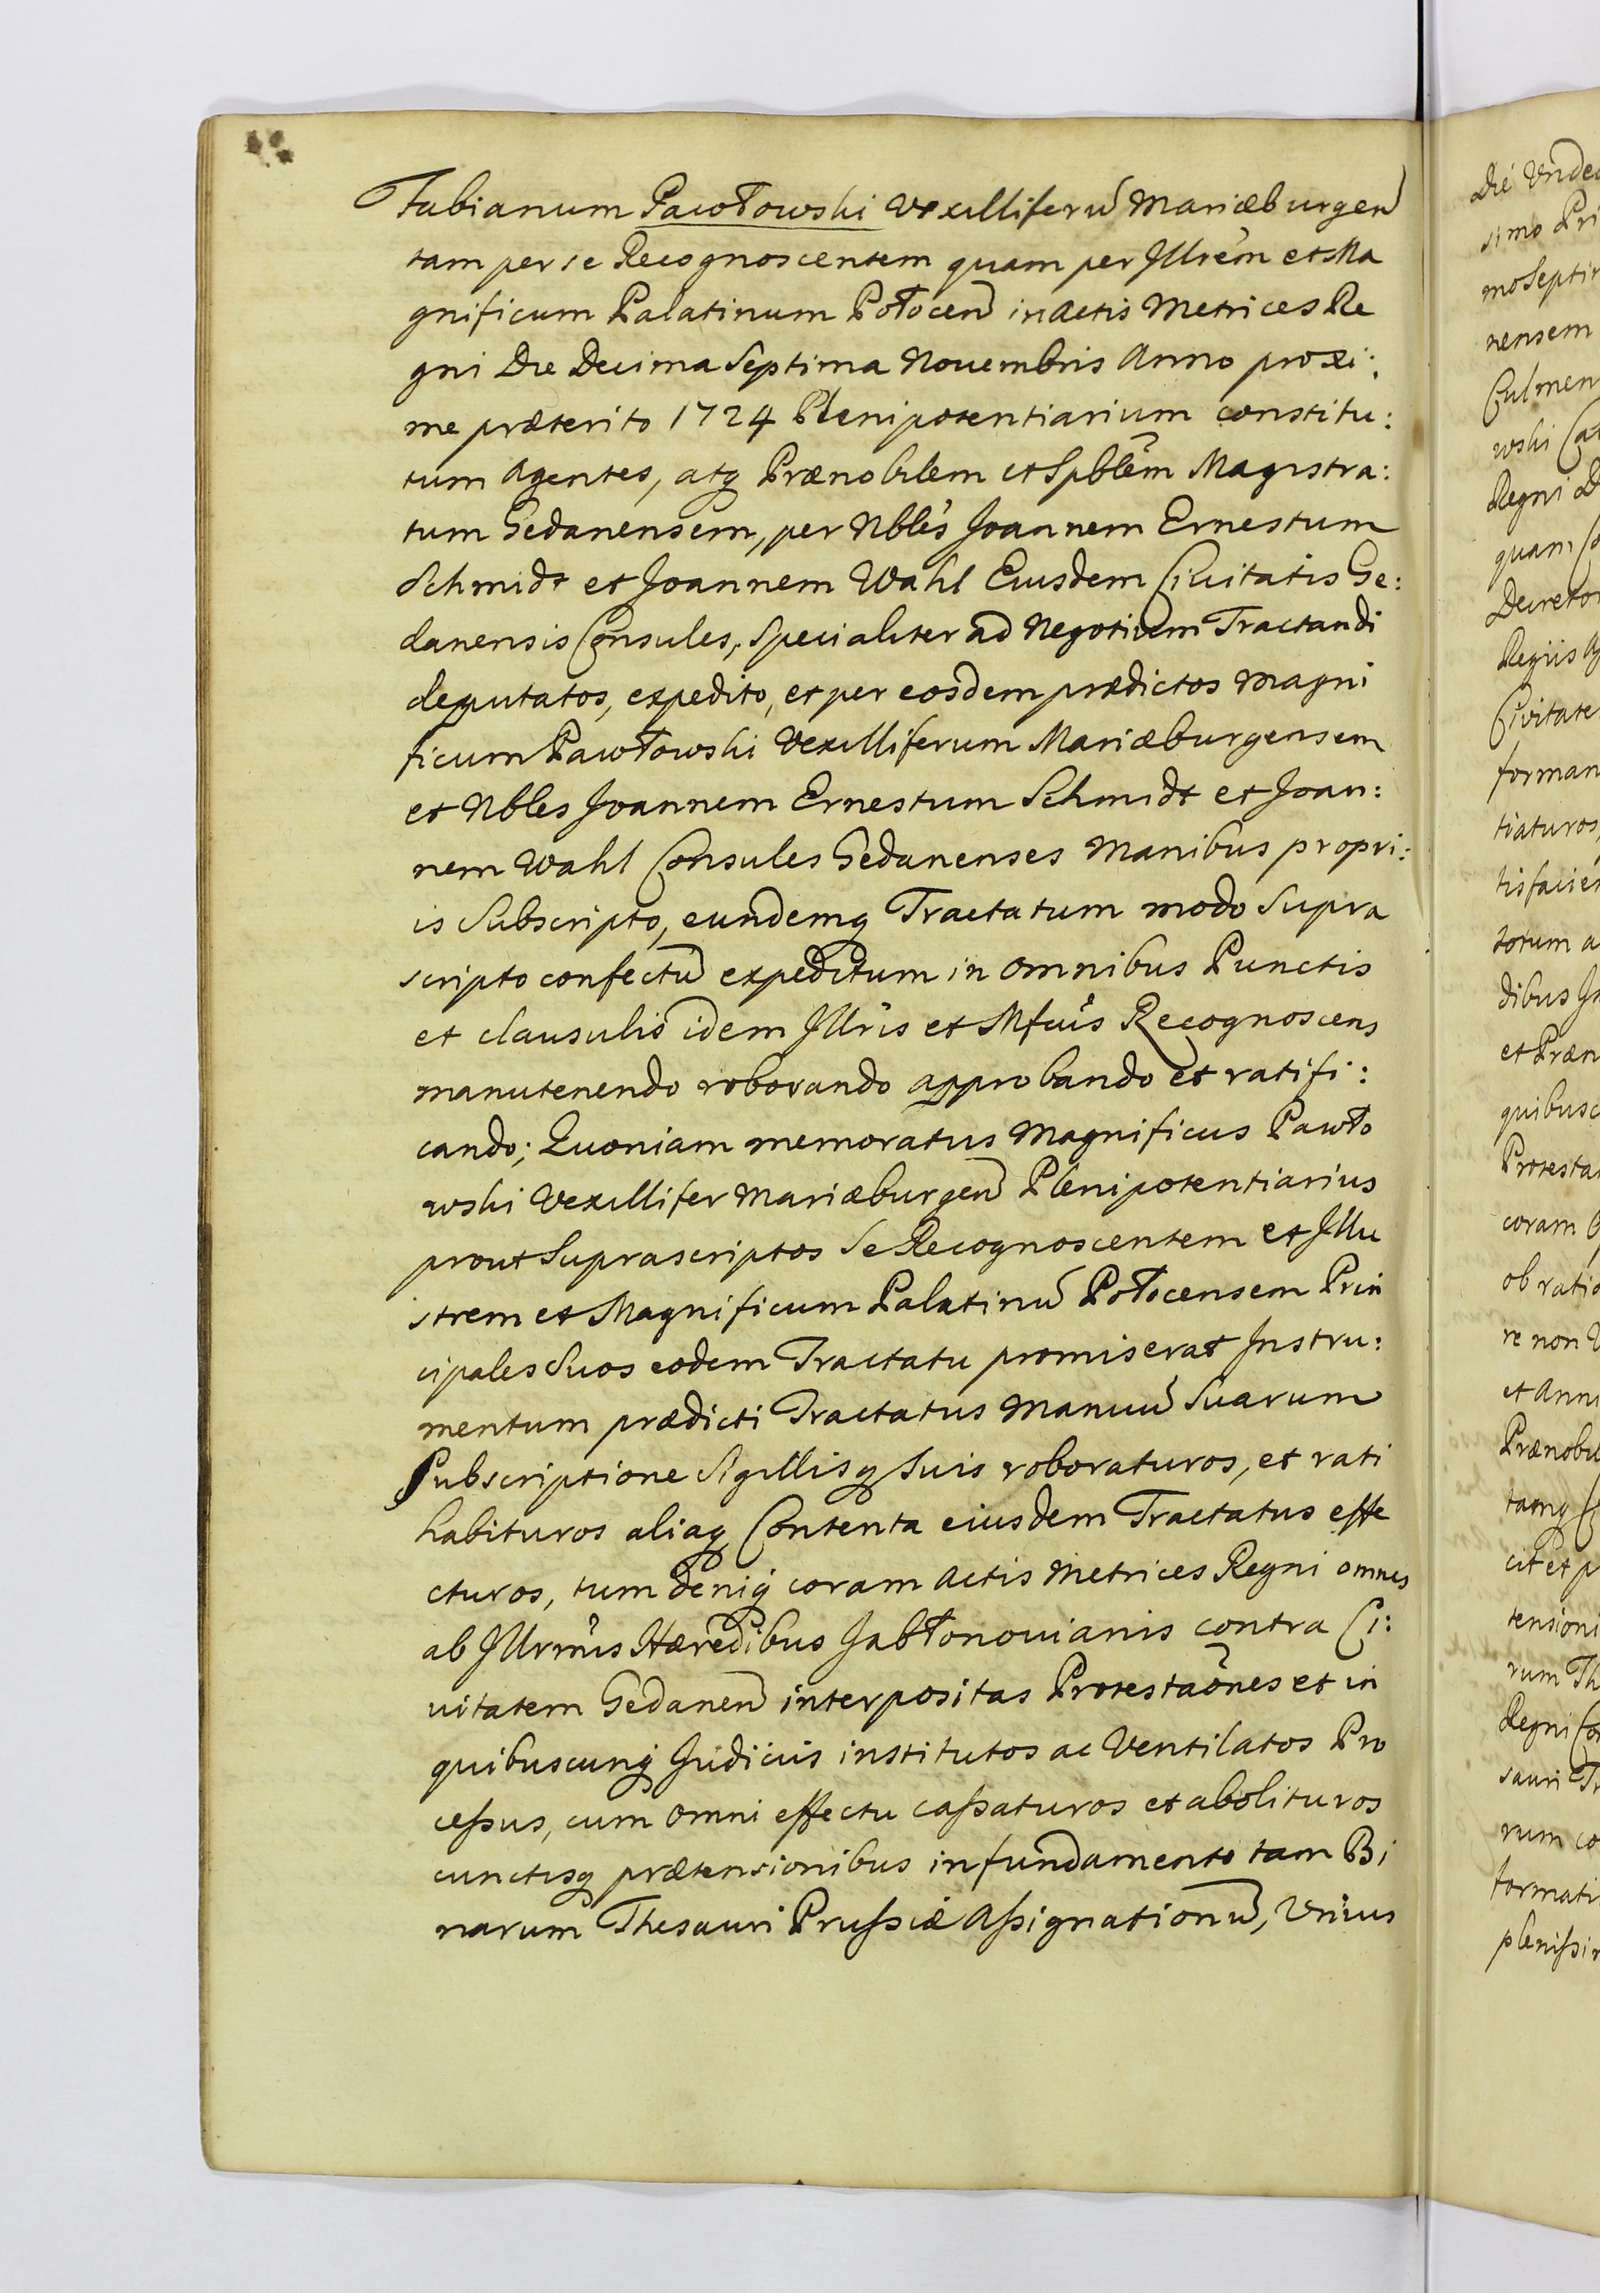 Fabianum Pawłowski Vexilliferū Mariæburgen̄
tam per se Recognoscentem quam per Illrem̄ et Ma
gnificum Palatinum Połocen̄ in Actis Metrices Re
gni Die Decima Septima Novembris Anno proxi:
me præterito 1724 Plenipotentiarium constitu:
tum Agentes, atq Prænobilem et Spblēm Magistra:
tum Gedanensem, per Nblēs Joannem Ernestum
Schmidt et Joannem Wahl Eiusdem Civitatis Ge:
danensis Consules, Specialiter ad Negotium Tractandi
deputatos, expedito, et per eosdem prædictos Magni
ficum Pawłowski Vexilliferum Mariæburgensem
et Nbles Joannem Ernestum Schmidt et Joan:
nem Wahl Consules Gedanenses Manibus propri:
is Subscripto, eundemq Tractatum modo Supra
scripto confectū expeditum in omnibus Punctis
et clausulis idem Illris̄ et Mfcus̄ Recognoscens
manutenendo roborando approbando et ratifi:
cando; Quoniam memoratus Magnificus Pawło
wski Vexillifer Mariæburgen̄ Plenipotentiarius
prout Suprascriptos Se Recognoscentem et Illu
strem et Magnificum Palatinū Połocensem Prin
cipales Suos eodem Tractatu promiserat Instru:
mentum prædicti Tractatus Manuū Suarum
Subscriptione Sigillisq Suis roboraturos, et rati
habituros aliaq Contenta eiusdem Tractatus effe
cturos, tum deniq coram Actis Metrices Regni omnes
ab Illrmis̄ Hæredibus Jabłonovianis contra Ci:
vitatem Gedanen̄ interpositas Protestaōnes et in
quibuscunq Judiciis institutos ac Ventilatos Pro
cessus, cum omni effectu cassaturos et abolituros
cunctisq prætensionibus in fundamento tam Bi
narum Thesauri Prussiæ Assignationū, Unius
Die Unde
simo Pri
mo Septi
nensem
Culmen
wski Ca
Regni D
quam Co
Decreto
Regiis A
Civitate
forman
tiaturos,
tisfacie
torum a
dibus
et Præn
quibusc
Protesta
coram
ob ratio
re non
et Ann
Prænobi
tamq
cit et p
tensioni
rum Th
Regni Co
sauri Tr
rum co
formati
plenissi